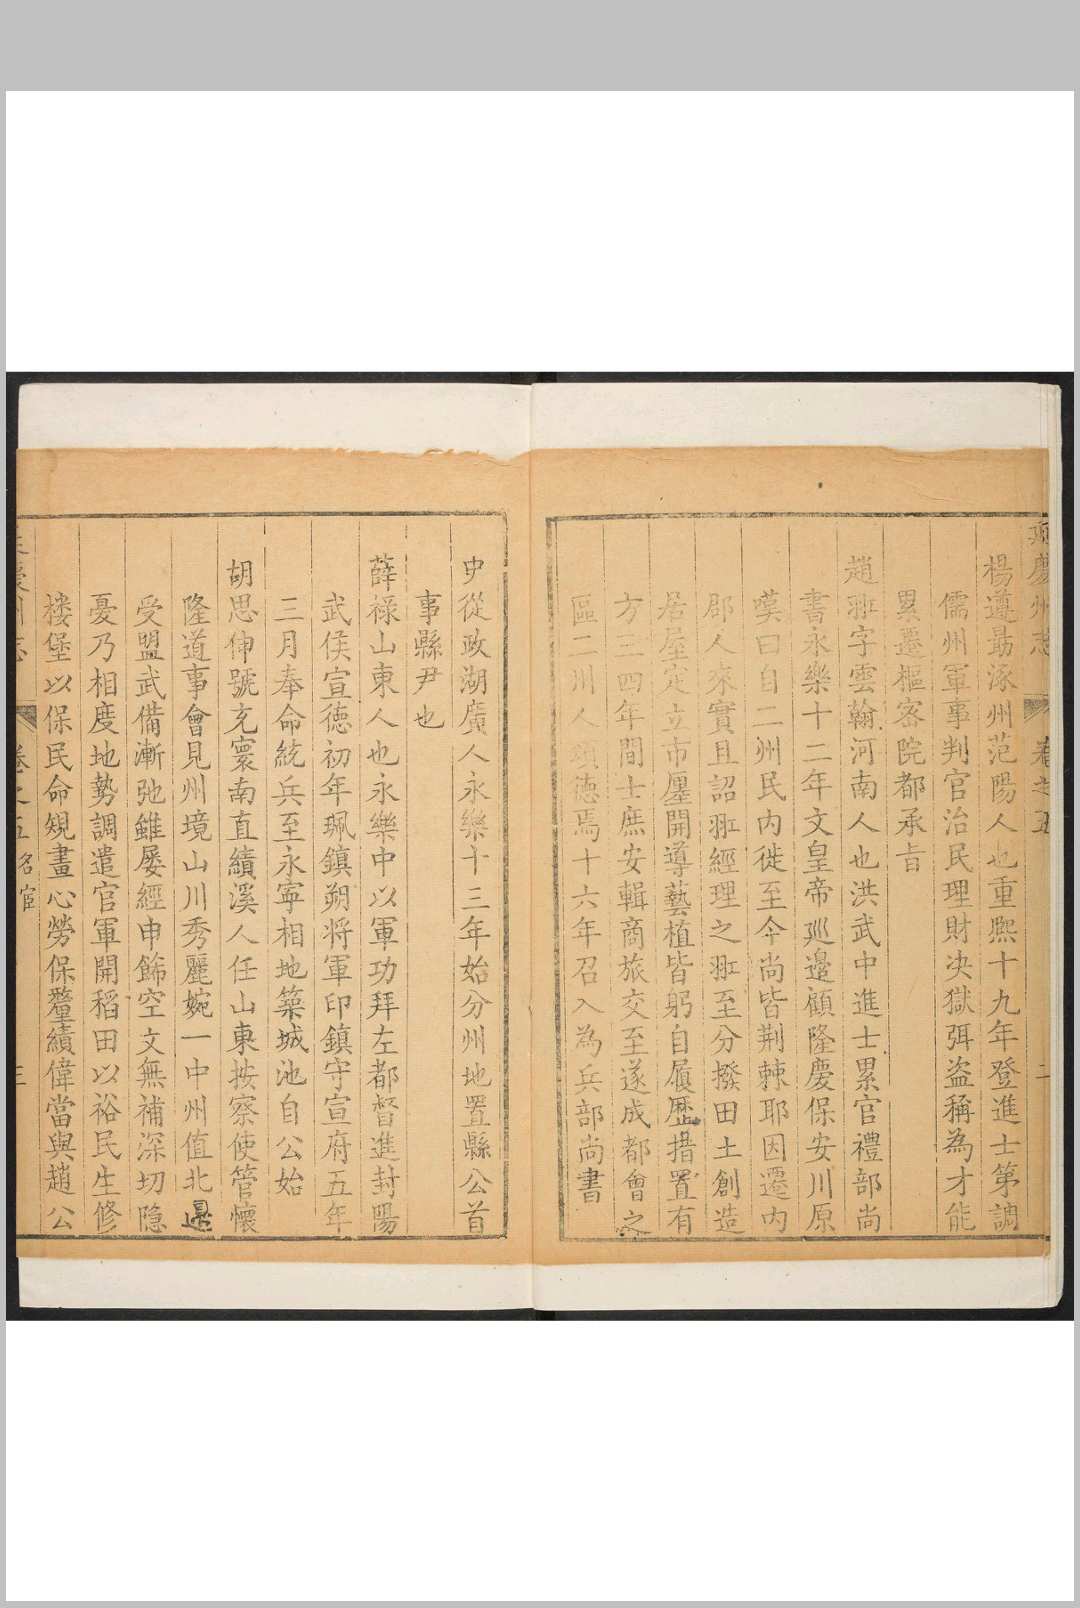 慶州志 卷之五 二
楊遵勗涿州范陽人也重熙十九年登進士第調
儒州軍事判官治民理財决獄弭盗稱為才能
累遷樞宻院都承旨
趙羾字雲翰河南人也洪武中進士累官禮部尚
書永樂十二年文皇帝廵邊顧隆慶保安川原
嘆曰自二州民内徙至今尚皆荆棘耶因遷内
郡人來實且詔羾經理之羾至分撥田土創造
居屋定立市廛開導藝植皆躬自履歴措置有
方三四年間士庶安輯商旅交至遂成都會之
區二州人頌德焉十六年召入為兵部尚書
史從政湖廣人永樂十三年始分州地置縣公首
事縣尹也
薛禄山東人也永樂中以軍功拜左都督進封陽
武侯宣德初年珮鎮朔将軍印鎮守宣府五年
三月奉命統兵至永寜相地築城池自公始
胡思伸號充寰南直績溪人任山東按察使管懷
隆道事會見州境山川秀麗婉一中州值北邊
受盟武備漸弛雖屡經申飭空文無補深切隐
憂乃相度地勢調遣官軍開稻田以裕民生修
楼堡以保民命䂓畫心勞保釐績偉當與趙公
卷之五 名宦 三